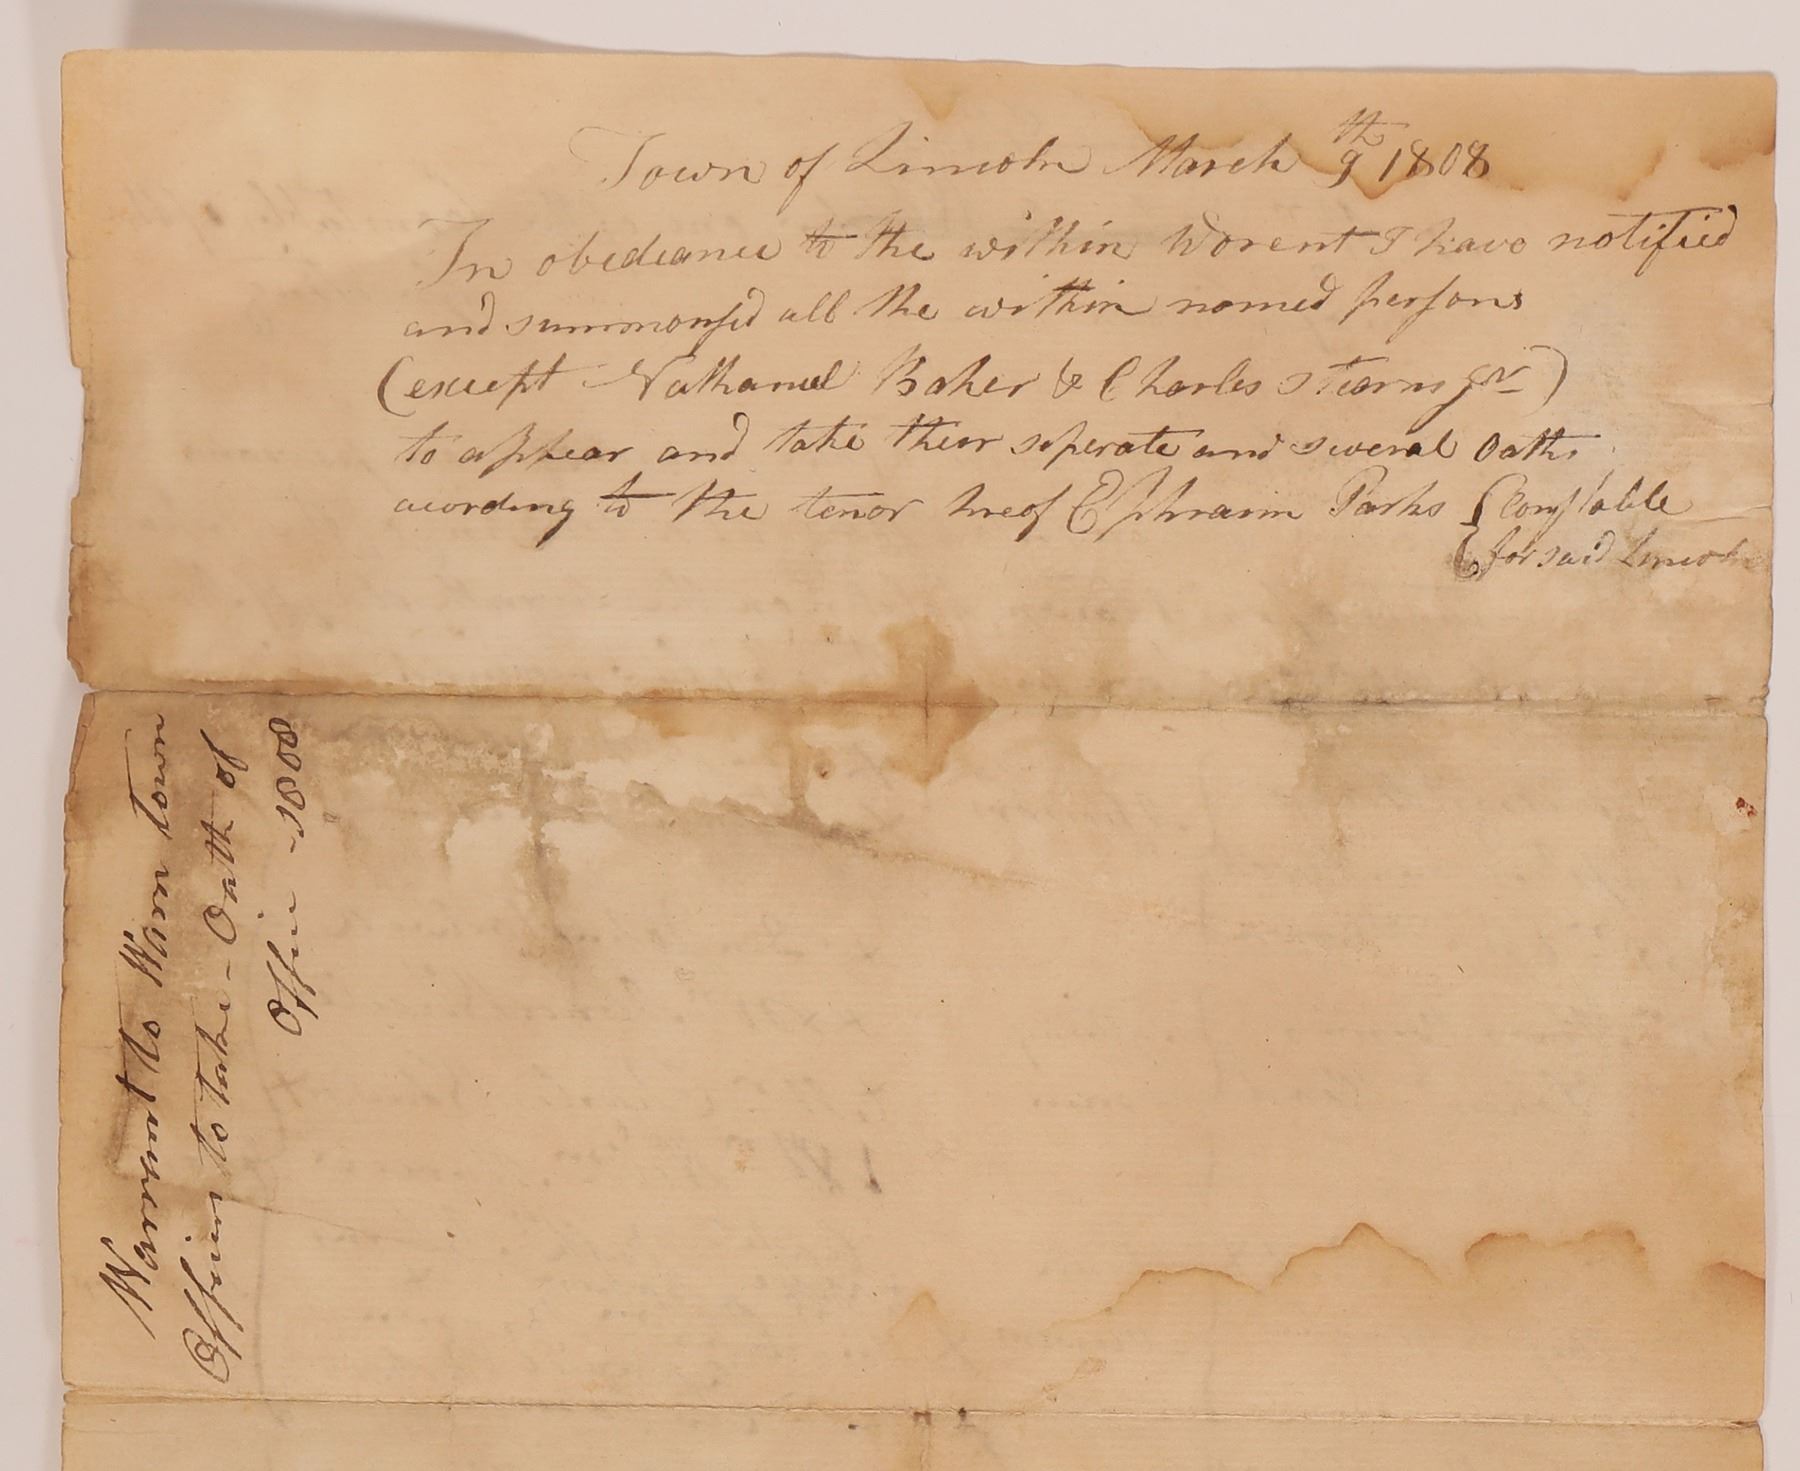 Town of Lincoln March 9th 1808
In obedeance to the within Worent I have notified
and summonsed all the within named persons
(except Nathanael Baker & Charles Stearns Jr)
to appear and take their seperate and several Oaths
acording to the tenor hreof Ephraim Parks { Constable
{ for said Lincoln
Warrant to Warn town
Officers to take - Oath of
Office - 1808